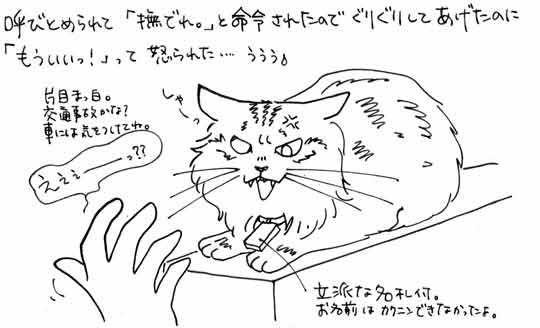 呼びとめられて「撫でれ。」と命令されたのでぐりぐりしてあげたのに
「もういいっ!」って怒られた…. ううう。
片目まっ白。
交通事故かな?
車には気をつけてね。
しゃーっ
えぇぇーーっ??
立派な名札付。
お名前はカクニンできなかったよ。